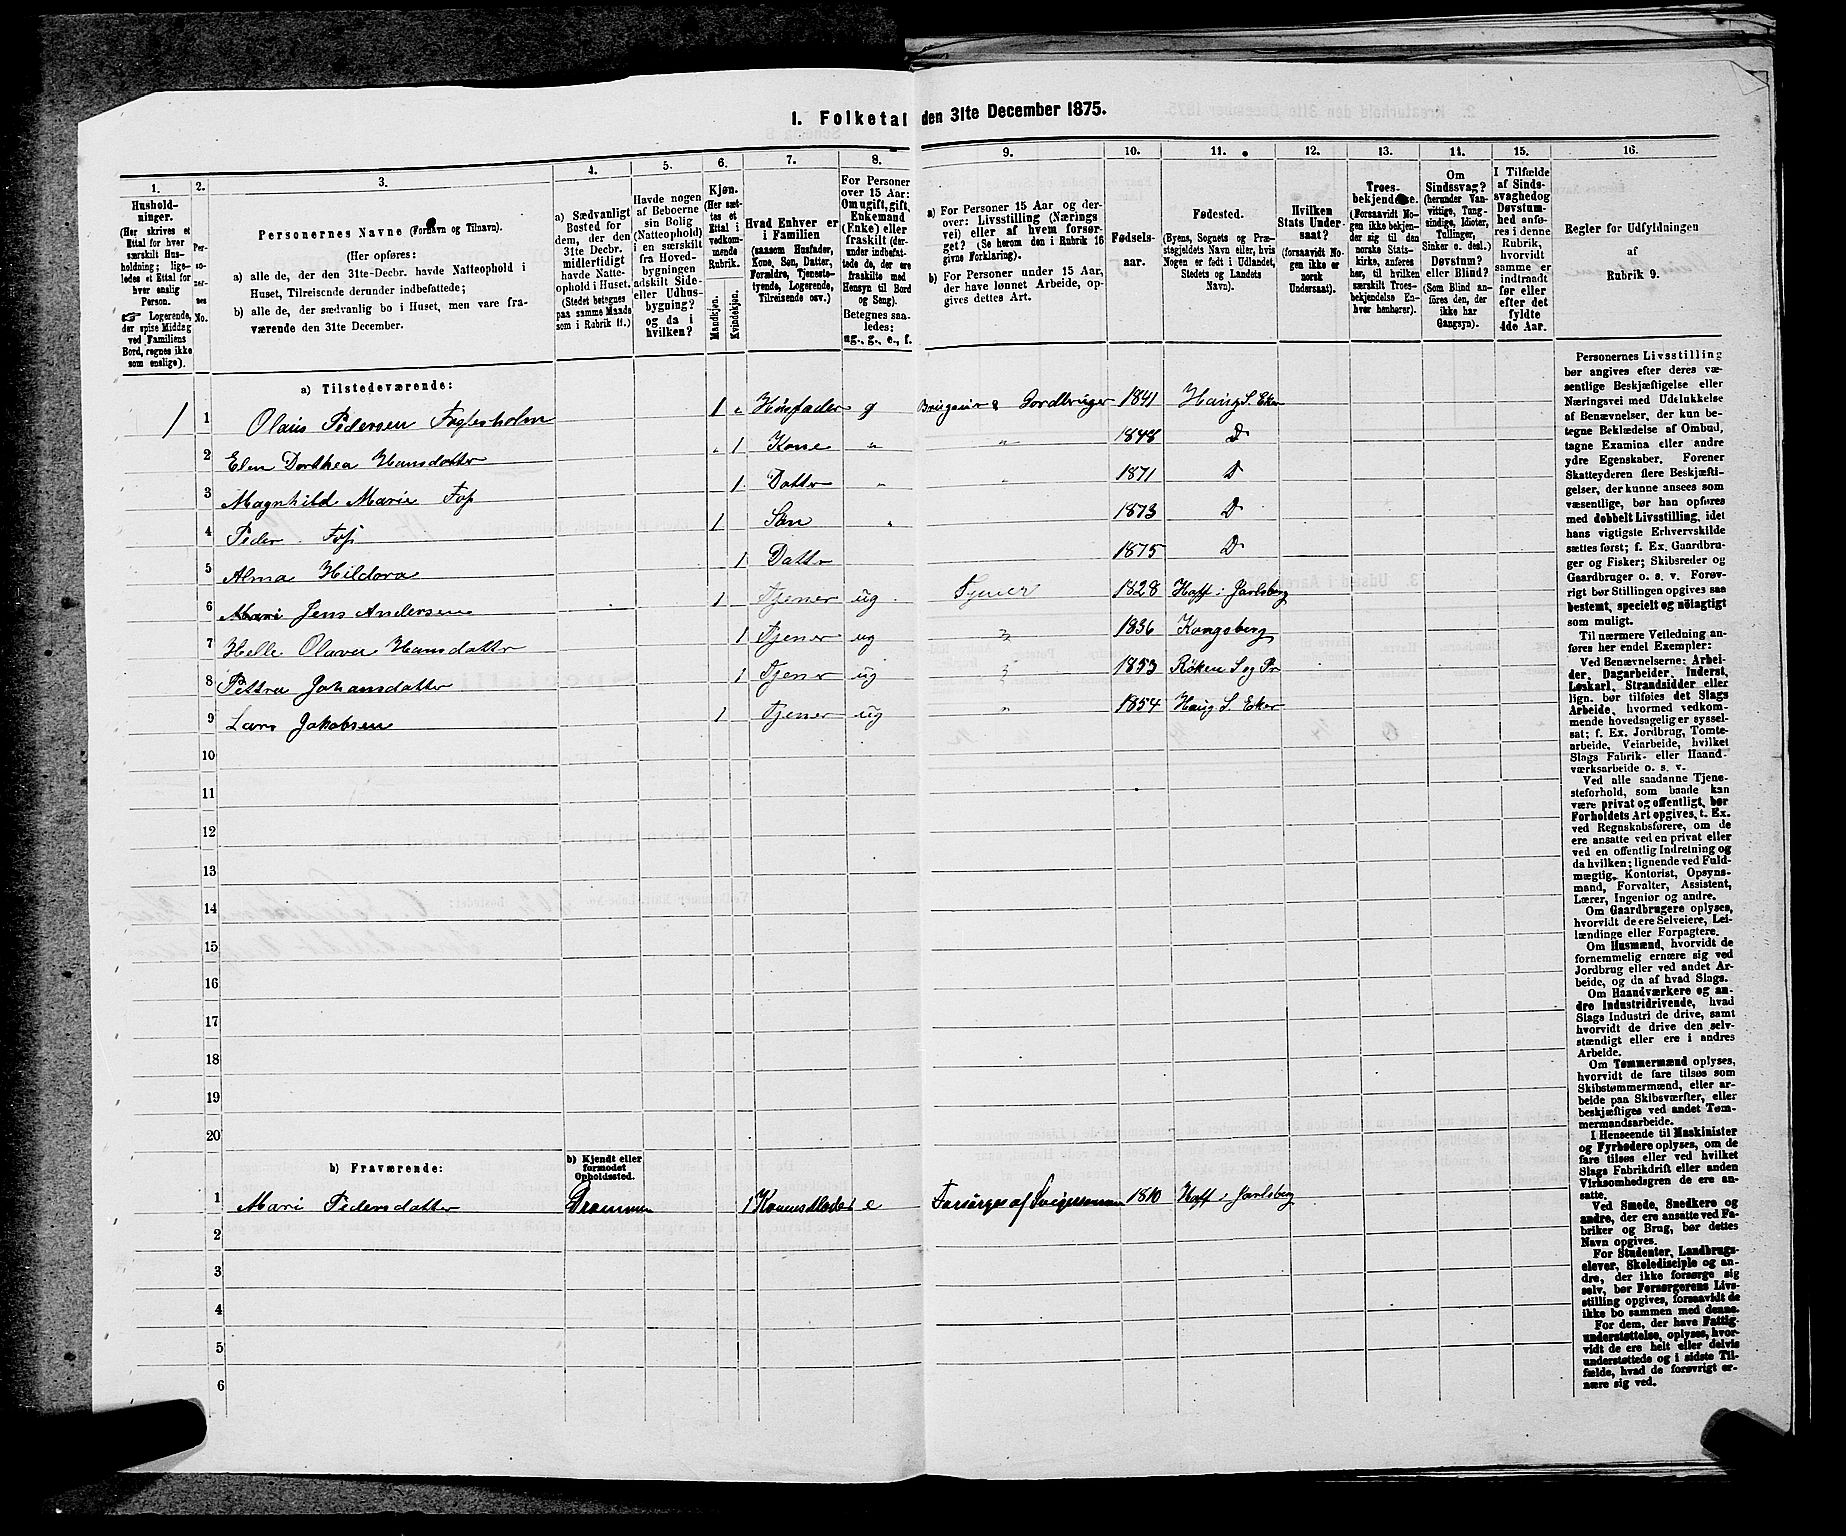 I. Folketal den 31te December 1875.
1.
Hushold-
ninger.
(Her skrives et
Ettal for hver
særskilt Hus-
holdning; lige-
ledes et Ettal for
hver enslig
Person.
☞ Logerende,
der spise Middag
ved Familiens
Bord, regnes ikke
som enslige).
2.
Per-
so-
ner-
nes
No.
3.
Personernes Navne (Fornavn og Tilnavn).
(Her opføres:
a) alle de, der den 31te-Decbr. havde Natteophold i
Huset, Tilreisende derunder indbefattede;
b) alle de, der sædvanlig bo i Huset, men vare fra-
værende den 31te December.
4.
a) Sædvanligt
Bosted for
dem, der den
31te Decbr.
midlertidigt
havde Natte-
ophold i Huset.
(Stedet betegnes
paa samme Maade
som i Rubrik 11.)
5.
Havde nogen
af Beboerne
sin Bolig
(Natteophold)
i en særskilt
fra Hoved-
bygningen
adskilt Side-
eller Udhus-
bygning?
og da i
hvilken?
6.
Kjøn.
(Her sæt-
tes et
Ettal i
vedkom-
mende
Rubrik.
Mandkjøn.
Kvindekjøn.
7.
Hvad Enhver er
i Familien
(saasom Husfader,
Kone, Søn, Datter,
Forældre, Tjeneste-
tyende, Logerende,
Tilreisende osv.)
8.
For Personer
over 15 Aar:
Om ugift, gift,
Enkemand
(Enke) eller
fraskilt (der-
under indbefat-
tede de, der ere
fraskilte med
Hensyn til Bord
og Seng).
Betegnes saa-
ledes:
ug., g., e., f.
9.
a) For Personer 15 Aar og der-
over: Livsstilling (Nærings
vei) eller af hvem forsør-
get? (Se herom den i Rubrik 16
givne Forklaring).
b) For Personer under 15 Aar,
der have lønnet Arbeide, op-
gives dettes Art.
10.
Fødsels-
aar.
11.
Fødested.
(Byens, Sognets og Præ-
stegjeldets Navn eller, hvis
Nogen er født i Udlandet,
Stedets og Landets
Navn).
12.
Hvilken
Stats Under-
saat?
(forsaavidt No-
gen ikke er
norsk
Undersaat).
13.
Troes-
bekjendelse.
(Forsaavidt No-
gen ikke bekjen-
der sig til den
norske Stats-
kirke, anføres
her, til hvilken
særskilt Troes-
bekjendelse En-
hver henhører).
14.
Om
Sindssvag?
(herunder Van-
vittige, Tung-
sindige, Idioter,
Tullinger,
Sinker o. desl.)
Døvstum?
eller Blind?
(Som Blind an-
føres den, der
ikke har
Gangsyn).
15.
I Tilfælde
af Sinds-
svaghed og
Døvstum-
hed anfø-
res i denne
Rubrik,
hvorvidt
samme er
indtraadt
før eller
efter det
fyldte
4de Aar.
16.
Regler for Udfyldningen
af
Rubrik 9.
a) Tilstedeværende:
1 1 Olaus Pedersen Foglesholm 1 Husfader g Brugseier & Jordbruger 1841 Haug S. Eker
2 Elen Dorthea Hansdatter 1 Kone „ „ 1848 D
3 Magnhild Marie 1 Datter „ 1871 D
4 Peder 1 Søn „ 1873 D
5 Alma Hildora 1 Datter 1875 D
6 Jens Andersen 1 Tjener ug. Tjener 1828 Hoff i Jarlsberg
7 Helle Olava Hansdatter 1 Tjener ug „ 1836 Kongsberg
8 Pettra Johansdatter 1 Tjener ug „ 1853 Røken S og Pr
9 Lars Jakobsen 1 Tjener ug „ 1854 Haug S. Eker
10
11
12
13
14
15
16
17
18
19
20
b) Fraværende:
b) Kjendt eller
formodet
Opholdssted.
1 Mari Pedersdatter Drammen 1 Konens Moder e Forsørges af Svigersønnen 1810 Hoff i Jarlsberg
2
3
4
5
6
Personernes Livsstilling
bør angives efter deres væ-
sentlige Beskjæftigelse eller
Næringsvei med Udelukkelse
af Benævnelser, der kun be-
tegne Beklædelse af Ombud,
tagne Examina eller andre
ydre Egenskaber. Forener
Skatteyderen flere Beskjæfti-
gelser, der kunne ansees som
væsentlige, bør han opføres
med dobbelt Livsstilling, idet
hans vigtigste Erhvervskilde
sættes først; f. Ex. Gaardbru-
ger og Fisker; Skibsreder og
Gaardbruger o. s. v. Forøv-
rigt bør Stillingen opgives saa
bestemt, specielt og nöiagtigt
som muligt.
Til nærmere Veiledning an-
føres her endel Exempler:
Ved Benævnelserne: Arbei-
der, Dagarbeider, Inderst,
Løskarl, Strandsidder eller
lign. bør tilføies det Slags
Arbeide, hvormed vedkom-
mende hovedsagelig er syssel-
sat; f. Ex. Jordbrug, Tomte-
arbeide, Veiarbeide, hvilket
Slags Fabrik- eller Haand-
værksarbeide o. s. v.
Ved alle saadanne Tjene-
steforhold, som baade kan
være privat og offentligt, bør
Forholdets Art opgives, t. Ex.
ved Regnskabsførere, om de
ere ansatte ved en privat eller
ved en offentlig Indretning og
da hvilken; lignende ved Fuld-
mægtig, Kontorist, Opsyns-
mand, Forvalter, Assistent,
Lærer, Ingeniør og andre.
Om Gaardbrugere oplyses,
hvorvidt de ere Selveiere, Lei-
lændinge eller Forpagtere.
Om Husmænd, hvorvidt de
fornemmelig ernære sig ved
Jordbrug eller ved andet Ar-
beide, og da af hvad Slags.
Om Haandværkere og an-
dre Industridrivende, hvad
Slags Industri de drive, samt
hvorvidt de drive den selv-
stændigt eller ere i andres
Arbeide.
Om Tømmermænd oplyses,
hvorvidt de fare tilsøs som
Skibstømmermænd, eller ar-
beide paa Skibsværfter, eller
beskjæftiges ved andet Tøm-
mermandsarbeide.
I Henseende til Maskinister
og Fyrbødere oplyses, om de
fare tilsøs eller ved hvilket
Slags Fabrikdrift eller anden
Virksomhedsgren de ere an-
satte.
Ved Smede, Snedkere og
andre, der ere ansatte ved Fa-
briker og Brug, bør dettes
Navn opgives.
For Studenter, Landbrugs-
elever, Skoledisciple og an-
dre, der ikke forsørge sig
selv, bør Forsørgerens Livs-
stilling opgives, forsaavidt de
ikke bo sammen med denne.
For dem, der have Fattig-
understøttelse, oplyses, hvor-
vidt de ere helt eller delvis
understøttede og i sidste Til-
fælde, hvad de forøvrigt er-
nære sig ved.